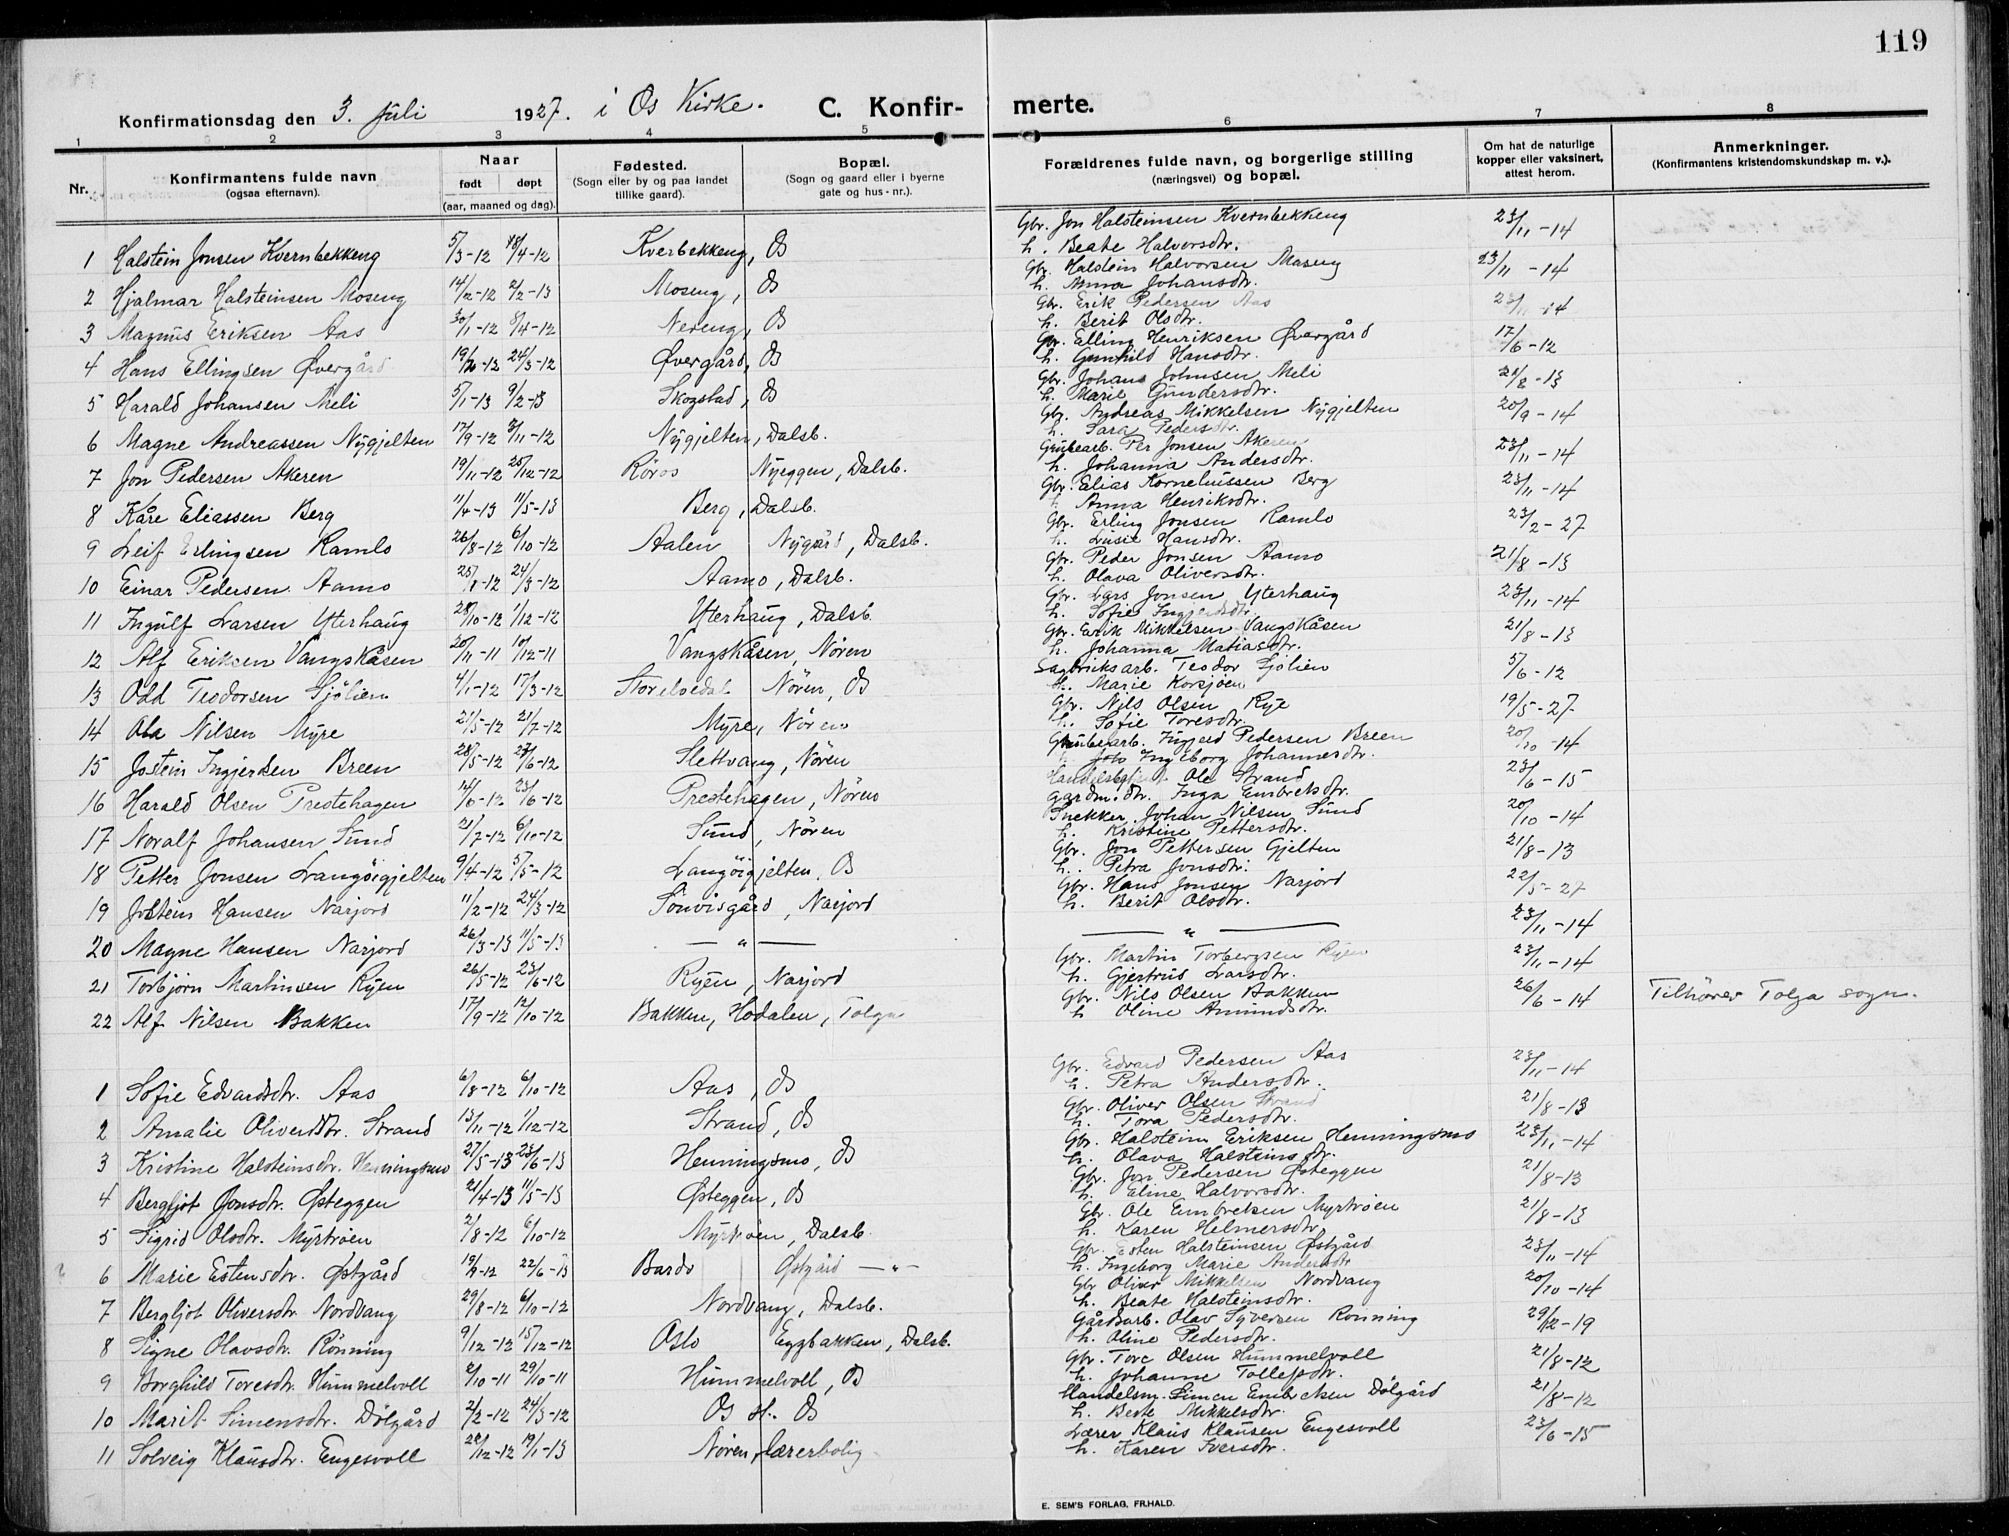 119
Konfirmationsdag den 3. Juli 1927. i Os Kirke. C. Konfir- merte.
1 2 3 4 5 6 7 8
Nr. Konfirmantens fulde navn (ogsaa efternavn). Naar født døpt (aar, maaned og dag). Fødested. (Sogn eller by og paa landet tillike gaard). Bopæl. (Sogn og gaard eller i byerne gate og hus-nr.). Forældrenes fulde navn, og borgerlige stilling (næringsvei) og bopæl. Om hat de naturlige kopper eller vaksinert, attest herom. Anmerkninger. (Konfirmantens kristendomskundskap m. v.).
1 Halstein Jonsen Kvernbekkeng 5/3-12 18/4-12 Kverbekkeng, Os Gbr. Jon Halsteinsen Kvernbekkeng 23/11-14
h. Beate Halvorsdtr.
2 Hjalmar Halsteinsen Moseng 14/12-12 2/2-13 Moseng, Os Gbr. Halstein Halvorsen Moseng 23/11-14
h. Anna Johansdtr.
3 Magnus Eriksen Aas 30/1-12 8/4-12 Nereng, Os Gbr. Erik Pedersen Aas 23/11-14
h. Berit Olsdtr.
4 Hans Ellingsen Øvergård 24/3-12 Øvergård, Os Gbr. Elling Henriksen Øvergård 17/6-12
h. Gunhild Hansdtr.
5 Harald Johansen Meli 5/1-13 9/2-13 Skogstad, Os Gbr. Johans Johnsen Meli 21/8-13
h. Marie Gundersdtr.
6 Magne Andreassen Nygjelten 17/9-12 3/11-12 Nygjelten, Dalsb. Gbr. Andreas Mikkelsen Nygjelten 20/9-14
h. Sara Pedersdtr.
7 Jon Pedersen Akeren 19/11-12 25/12-12 Röros Nyeggen, Dalsb. Grubearb. Per Jonsen Akeren 23/11-14
h. Johanna Andersdtr.
8 Kåre Eliassen Berg 11/4-13 11/5-13 Berg, Dalsb. Gbr. Elias Korneliussen Berg 23/11-14
h. Anna Henriksdtr.
9 Leif Erlingsen Ramlo 26/8-12 6/10-12 Aalen Nygård, Dalsb. Gbr. Erling Jonsen Ramlo 23/2-27
h. Lusie Hansdtr.
10 Einar Pedersen Aamo 24/3-12 Aamo, Dalsb. Gbr. Peder Jonsen Aamo 21/8-13
h. Olava Oliversdtr.
11 Ingulf Larsen Ytterhaug 28/10-12 1/12-12 Ytterhaug, Dalsb. Gbr. Lars Jonsen Yterhaug 23/11-14
h. Sofie Ingjerdsdtr.
12 Alf Eriksen Vangskåsen 20/11-11 10/12-11 Vangskåsen, Nören Gbr. Erik Mikkelsen Vangskåsen 21/8-13
h. Johanna Matiasdtr.
13 Odd Teodorsen Sjölien 4/1-12 17/3-12 Storelvedal Nören, Os Sagbruksarb. Teodor Sjölien 5/6-12
h. Marie Korsjöen
14 Ola Nilsen Myre 21/5-12 21/7-12 Myre, Nören Gbr. Nils Olsen Rye 19/5-27
h. Sofie Toresdtr.
15 Jostein Ingjerdsen Breen 28/5-12 27/6-12 Slettvang, Nören Grubearb. Ingjerd Pedersen Breen 20/10-14
Ingeborg Johannesdtr.
16 Harald Olsen Prestehagen 14/6-12 23/6-12 Prestehagen, Nören Ole Strand 23/6-15
gardm. dtr. Inga Embretsdtr.
17 Noralf Johansen Sund 21/7-12 6/10-12 Sund, Nören Snekker Johan Nilsen Sund 20/10-14
h. Kristine Pettersdtr.
18 Petter Jonsen Langöigjelten 9/4-12 5/5-12 Langöigjelten, Os Gbr. Jon Pettersen Gjelten 21/8-13
h. Petra Jonsdtr.
19 Jostein Hansen Narjord 11/2-12 24/3-12 Sönvisgård, Narjord Gbr. Hans Jonsen Narjord 22/5-27
h. Berit Olsdtr.
20 Magne Hansen Narjord 26/3-13 11/5-13 — " — — " — 23/11-14
21 Torbjörn Martinsen Ryen 26/5-12 23/6-12 Ryen, Narjord Gbr. Martin Torbergsen Ryen 23/11-14
h. Gjertrud Larsdtr.
22 Alf Nilsen Bakken 17/9-12 12/10-12 Bakken, Hodalen, Tolga Gbr. Nils Olsen Bakken 26/6-14 Tilhörer Tolga sogn.
h. Oline Amundsdtr.
1 Sofie Edvardsdtr. Aas 6/8-12 6/10-12 Aas, Os Gbr. Edvard Pedersen Aas 23/11-14
h. Petra Andersdtr.
2 Amalie Oliversdtr. Strand 13/11-12 1/12-12 Strand, Os Gbr. Oliver Olsen Strand 21/8-13
h. Tora Pedersdtr.
3 Kristine Halsteinsdtr. Henningsmo 27/5-13 23/6-13 Henningsmo, Os Gbr. Halstein Eriksen Henningsmo 23/11-14
h. Olava Halsteinsdtr.
4 Bergljot Jonsdtr. Østeggen 21/4-13 11/5-13 Østeggen, Os Gbr. Jon Pedersen Østeggen 21/8-13
h. Eline Halvorsdtr.
5 Sigrid Olsdtr. Myrtröen 2/8-12 6/10-12 Myrtröen, Dalsb. Gbr. Ole Embretsen Myrtröen 21/8-13
h. Karen Helmersdtr.
6 Marie Estensdtr. Østgård 22/6-13 Bardo Østgård — " — Gbr. Esten Halsteinsen Østgård 23/11-14
h. Ingeborg Marie Andersdtr.
7 Bergljot Oliversdtr. Nordvang 29/8-12 6/10-12 Nordvang, Dalsb. Gbr Oliver Mikkelsen Nordvang 20/10-14
h. Beate Halsteinsdtr.
8 Signe Olavsdtr. Rönning 9/12-12 15/12-12 Oslo Eggbakken, Dalsb. Gårdsarb. Olav Syversen Rönning 29/12-19
h. Oline Pedersdtr.
9 Borghild Toresdtr. Hummelvoll 2/10-11 29/10-11 Hummelvoll, Os Gbr. Tore Olsen Hummelvoll 21/8-12
h. Johanne Tollefsdtr.
10 Marit Simensdtr. Dölgård 2/2-12 24/3-12 Os st. Os Handelsm. Simen Embretsen Dölgård 21/8-12
h. Berte Mikkelsdtr.
11 Solveig Klausdtr. Engesvoll 19/1-13 Nören, lærerbolig Lærer Klaus Klausen Engesvoll 23/6-15
h. Karen Iversdtr.
E. SEM'S FORLAG, FR.HALD.